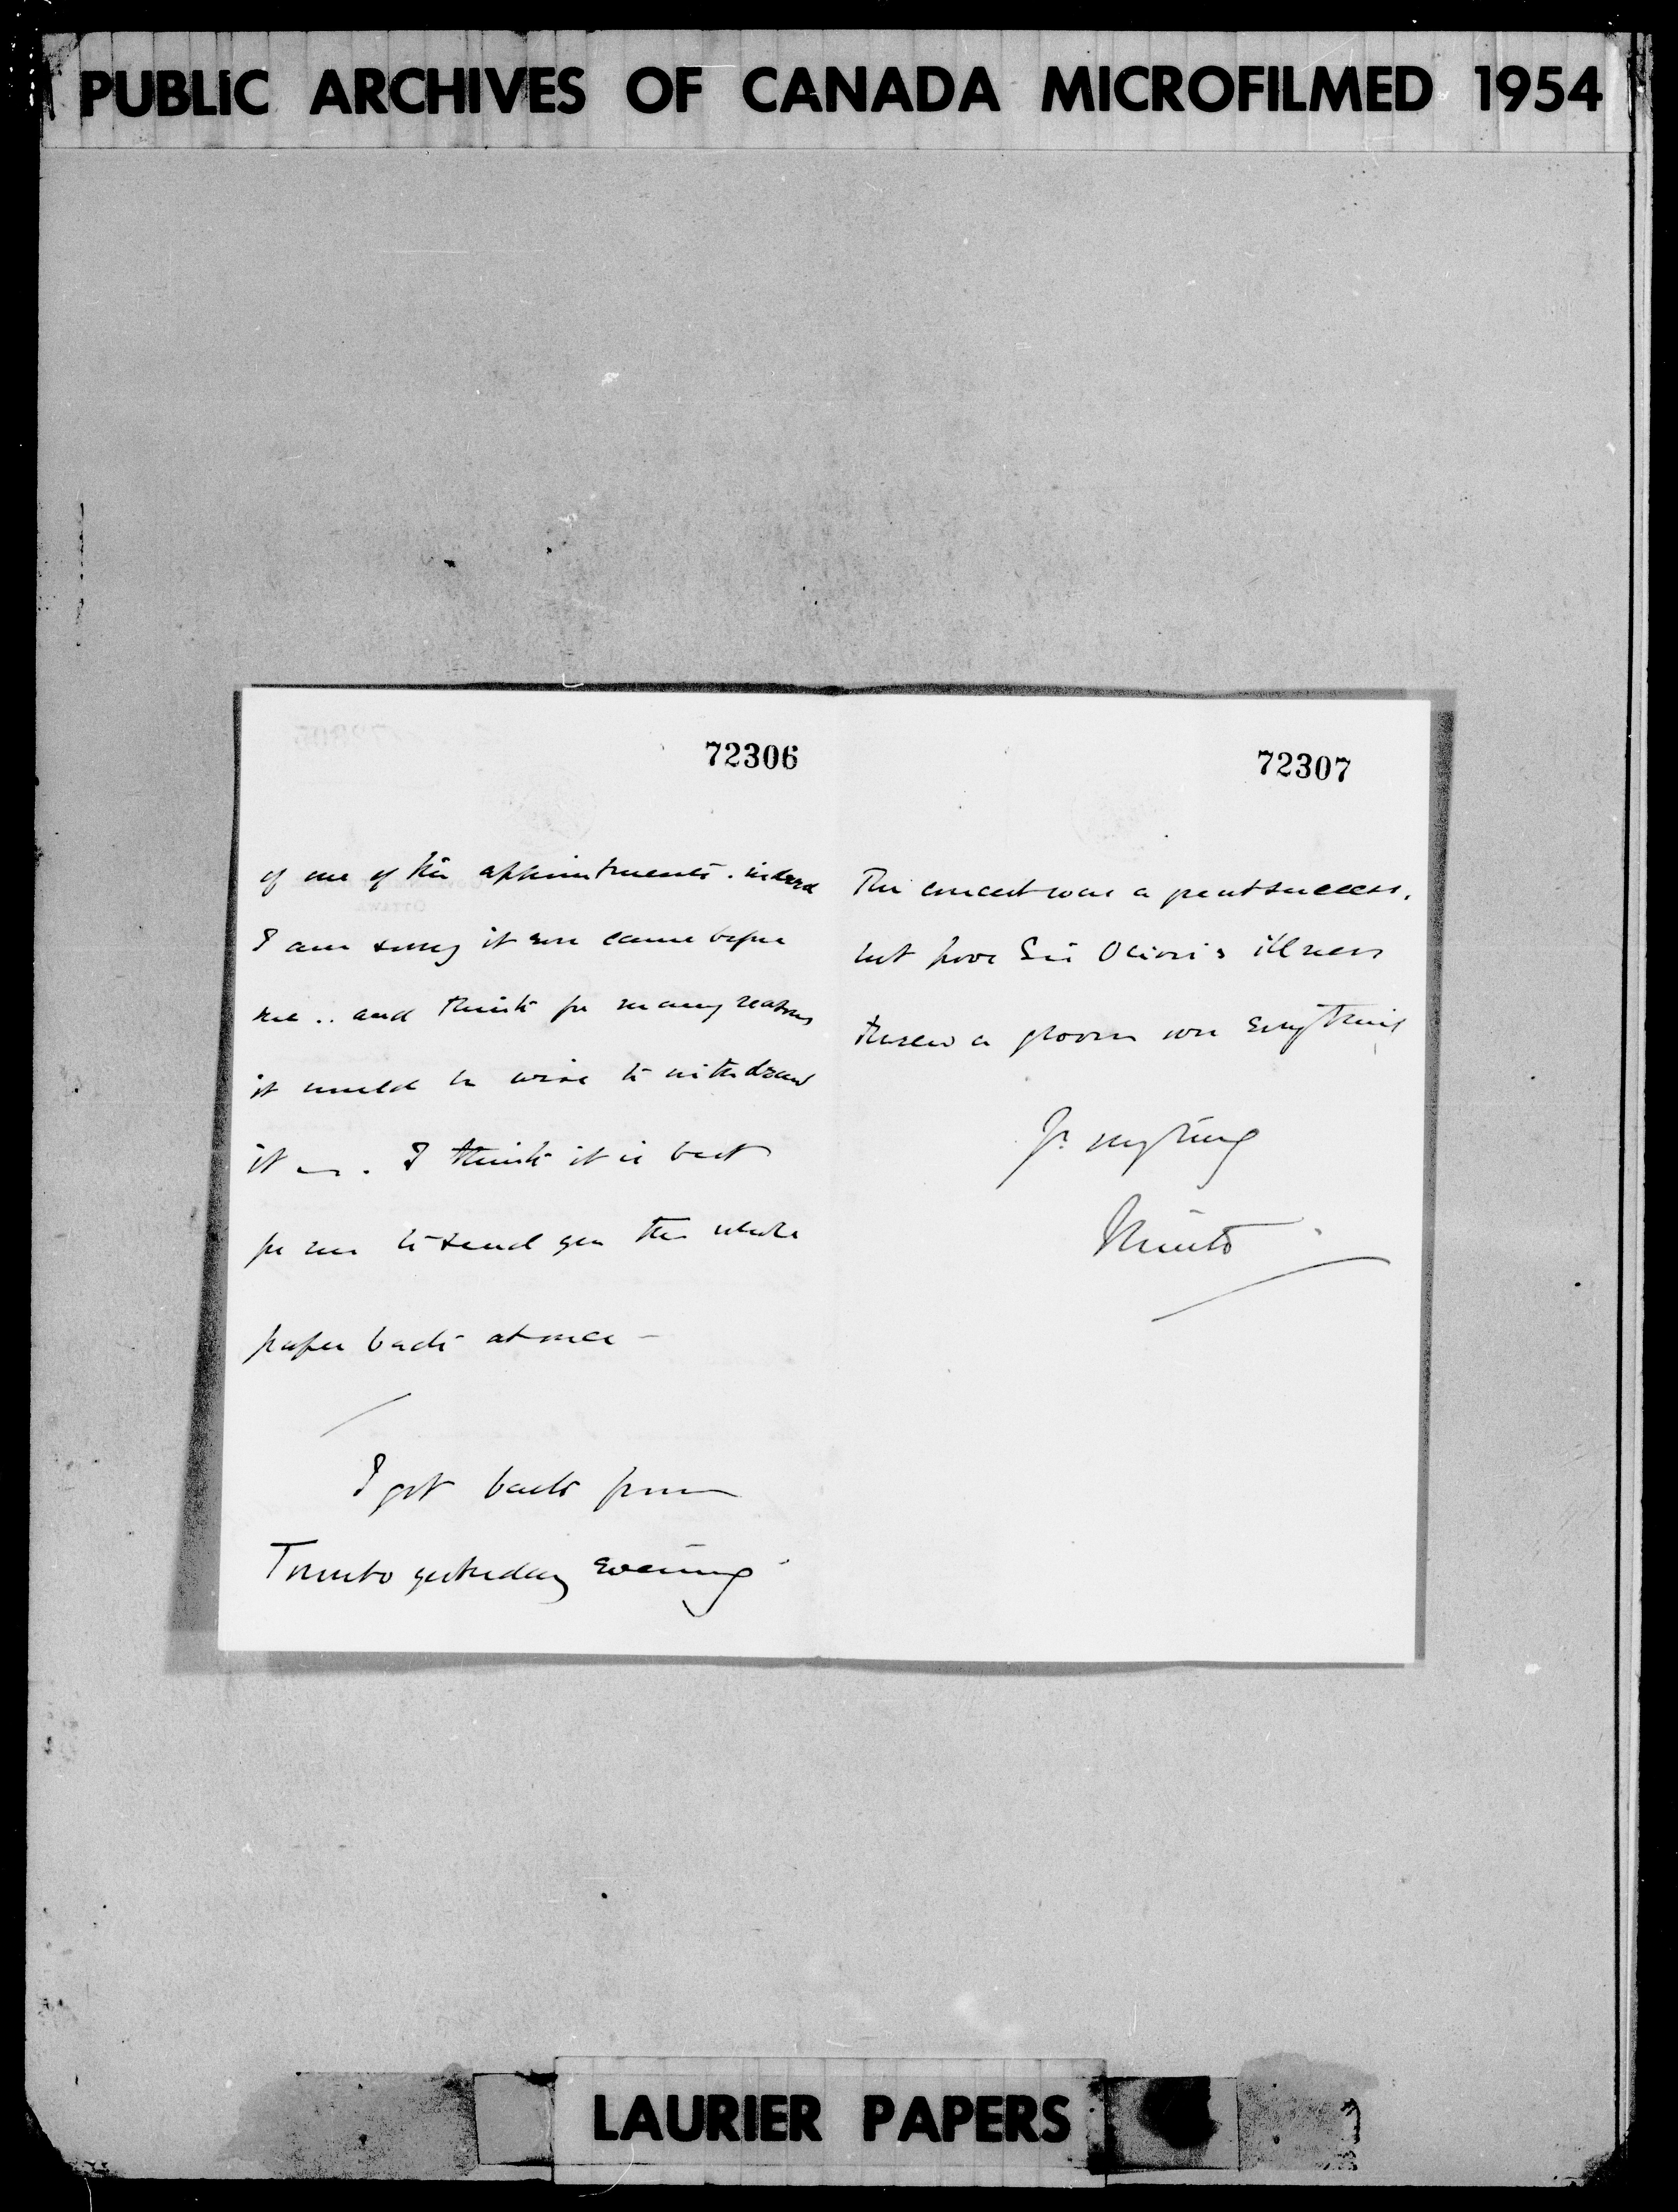 PUBLIC ARCHIVES OF CANADA MICROFILMED 1954
72306
of one of the appointments. indeed
I am sorry it ever came before
me .. and think for many reasons
it would be wise to withdraw
it . I think it is best
for me to send you the whole
paper back at once —
I got back from
Toronto yesterday evening
72307
The concert was a great success,
but poor Sir Oliver's illness
threw a gloom over everything
Yr. very truly
Minto
LAURIER PAPERS